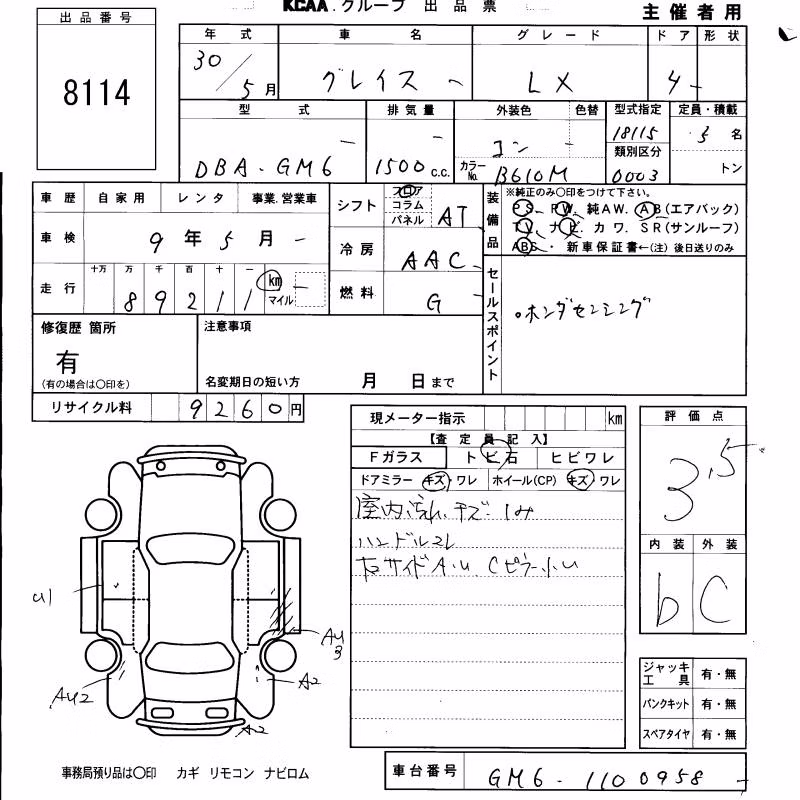 出品番号
8114
KCAA.グループ 出品票
主催者用
年式 車名 グレード ドア 形状
30/5月 グレイス LX 4
型式 排気量 外装色 色替 型式指定 定員・積載
DBA・GM6 1500c.c. コン 18115 5名
カラーNo. B610M 類別区分 0003 トン
車歴 自家用 レンタ 事業.営業車
車検 9年5月
走行 十万 万 千 百 十 一
89211 km マイル
シフト フロア コラム パネル AT
冷房 AAC
燃料 G
装備品
※純正のみ〇印をつけて下さい。
PS、PW、純AW. AB(エアバック)
TV、ナビ、カワ. SR(サンルーフ)
ABS・新車保証書←(注) 後日送りのみ
セールスポイント
。ホンダセンシング
修復歴 箇所
有
(有の場合は〇印を)
注意事項
名変期日の短い方 月 日まで
リサイクル料 9260円
現メーター指示 km
【査定員記入】
Fガラス トビ石 ヒビワレ
ドアミラー キズ・ワレ ホイール(CP) キズ・ワレ
室内汚れ.キズ.シミ
ハンドルスレ
右サイドA.U. Cピラー小U
評価点
3.5
内装 外装
b C
ジャッキ工具 有・無
パンクキット 有・無
スペアタイヤ 有・無
U1
AU3
AU2
A2
A2
事務局預り品は〇印 カギ リモコン ナビロム
車台番号 GM6-1100958